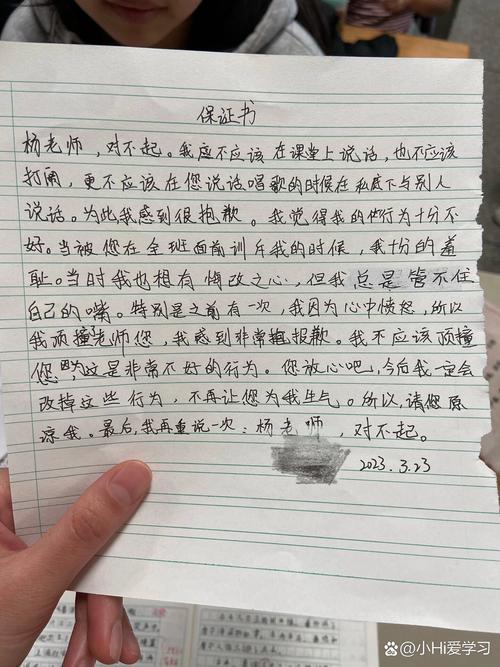 保证书
杨老师，对不起。我应不应该在课堂上说话，也不应该
打闹，更不应该在您说话唱歌的时候在私底下与别人
说话。为此，我感到很抱歉。我觉得我的行为十分不
好。当被您在全班面前训斥我的时候，我十份的羞
耻。当时我也想有悔改之心，但我总是管不住
自己的嘴。特别是之前有一次，我因为心中愤怒，所以
我顶撞了老师您，我感到非常抱歉。我不应该顶撞
您，因为这是非常不好的行为。您放心吧，今后我一定会
改掉这些行为，不再让您为我生气。所以，请您原
谅我。最后，我再重说一次：杨老师，对不起。
2023.3.23
@小Hi爱学习